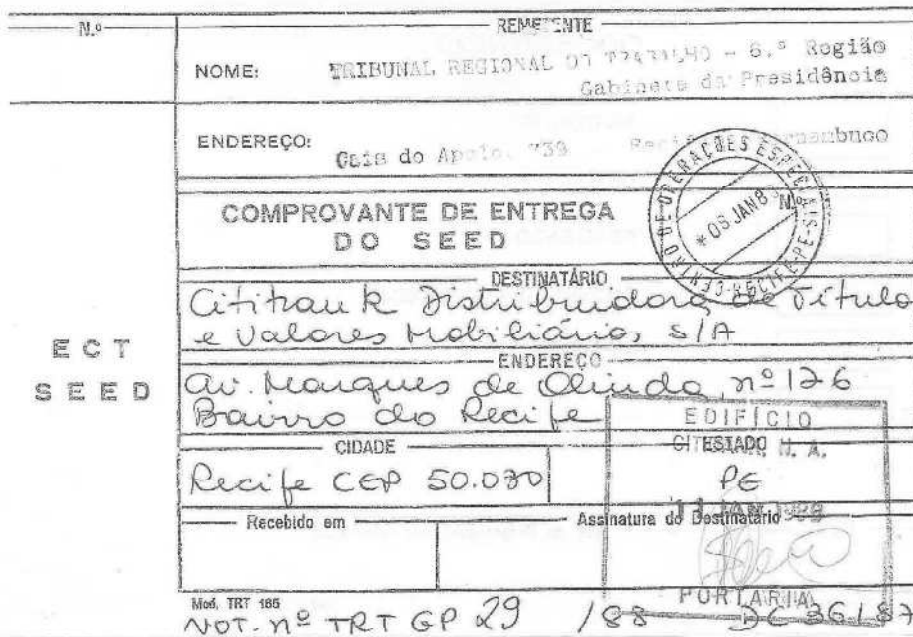 N.º
REMETENTE
NOME: TRIBUNAL REGIONAL DO TRABALHO - 6.ª Região
Gabinete da Presidência
ENDEREÇO: Cais do Apolo, 739 Recife Pernambuco
CENTRO DE OPERAÇÕES ESPECIAIS-PE-
-RECIFE-
COMPROVANTE DE ENTREGA
DO SEED
N.º
DESTINATÁRIO
Citibank Distribuidora de Título
e Valores Mobiliários, S/A
ECT
SEED
ENDEREÇO
Av. Marques de Olinda, nº 126
Bairro do Recife
EDIFÍCIO
CITIBANK, N. A.
CIDADE
ESTADO
Recife CEP 50.030
PE
11 JAN 1988
Recebido em
Assinatura do Destinatário
PORTARIA
Mod. TRT 165
NOT. nº TRT GP 29 /88 DC 36/87